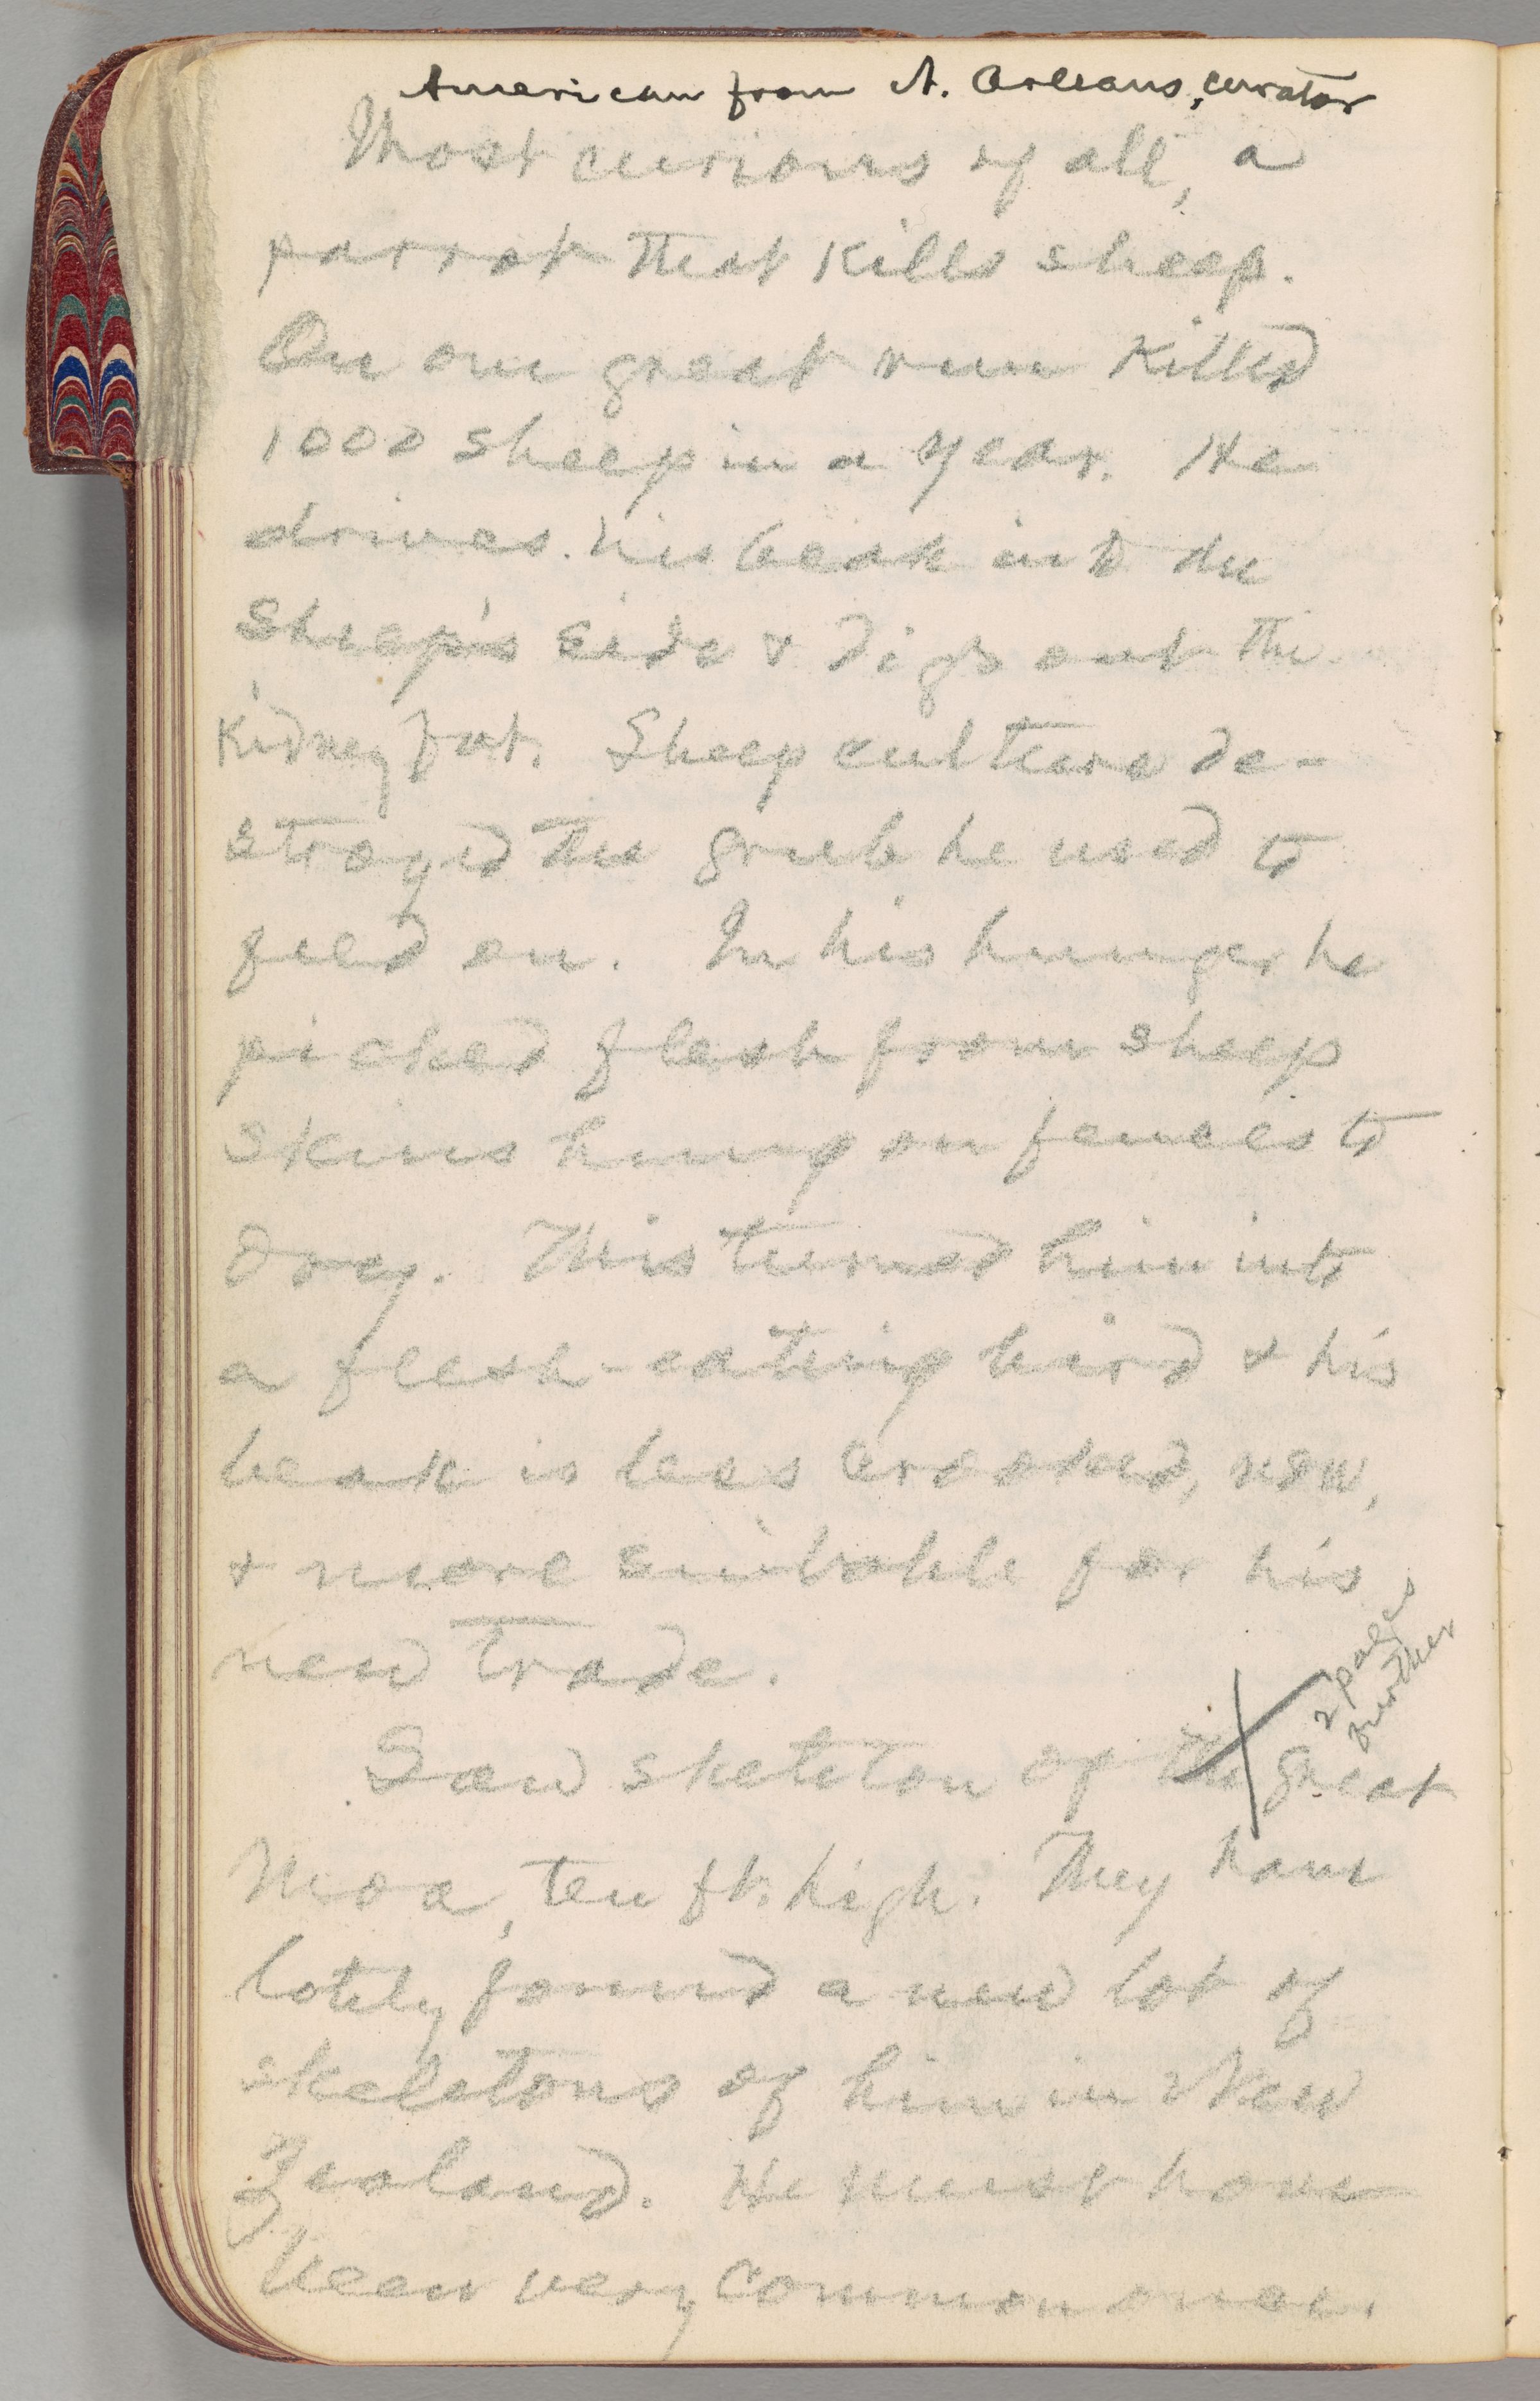 American from N. Orleans, curator
Most curious of all, a
parrot that kills sheep.
On one great run killed
1000 sheep in a year. He
drives his beak into the
sheep's side & digs out the
kidney fat. Sheep culture de-
stroyed the grub he used to
feed on. In his hunger he
picked flesh from sheep
skins hung on fences to
dry. This turned him into
a flesh-eating bird & his
beak is less crooked, now,
& more suitable for his
new trade.
2 pages
further
Saw skeleton of the great
Moa, ten ft. high. They have
lately found a new lot of
skeletons of him in New
Zealand. He must have
been very common once.